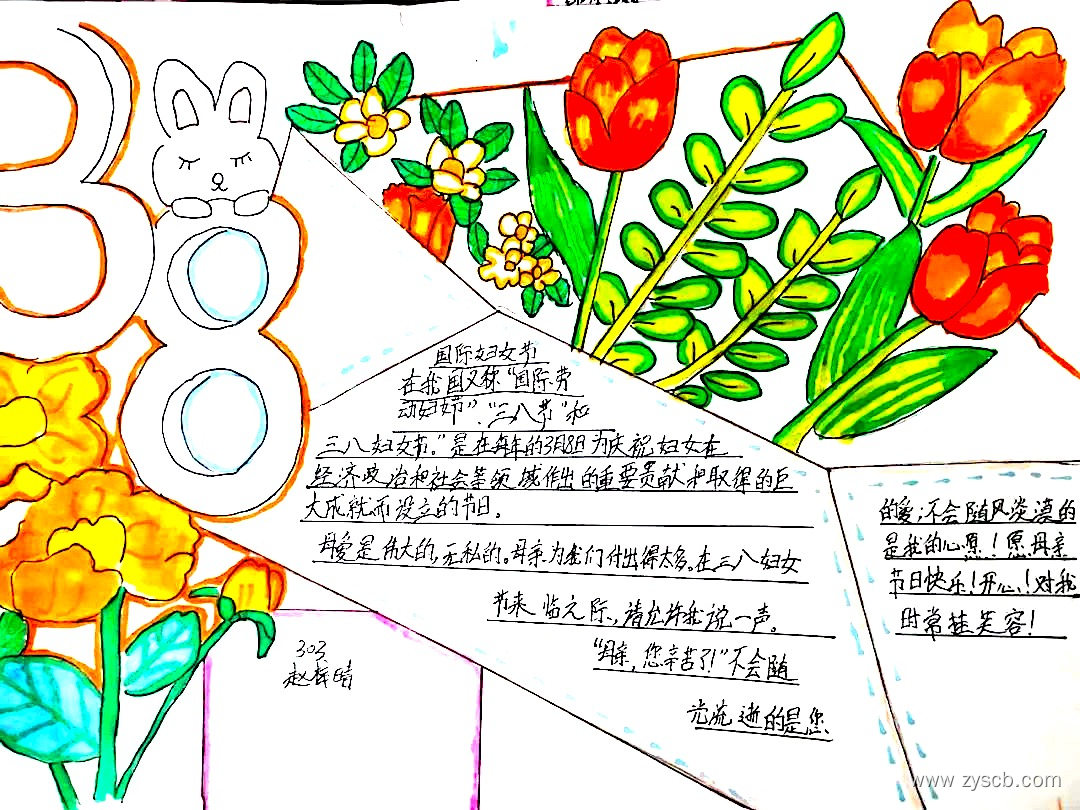 38
国际妇女节
在我国又称“国际劳
动妇女节”、“三八节”和
三八妇女节。”是在每年的3月8日为庆祝妇女在
经济政治和社会等领域作出的重要贡献和取得的巨
大成就而设立的节日。
母爱是伟大的,无私的。母亲为我们付出得太多。在三八妇女
节来临之际,请允许我说一声。
“母亲,您辛苦了!”不会随
光流逝的是您
的爱;不会随风淡漠的
是我的心愿!愿母亲
节日快乐!开心!对我
时常挂笑容!
303
赵梓晴
www.zyscb.com